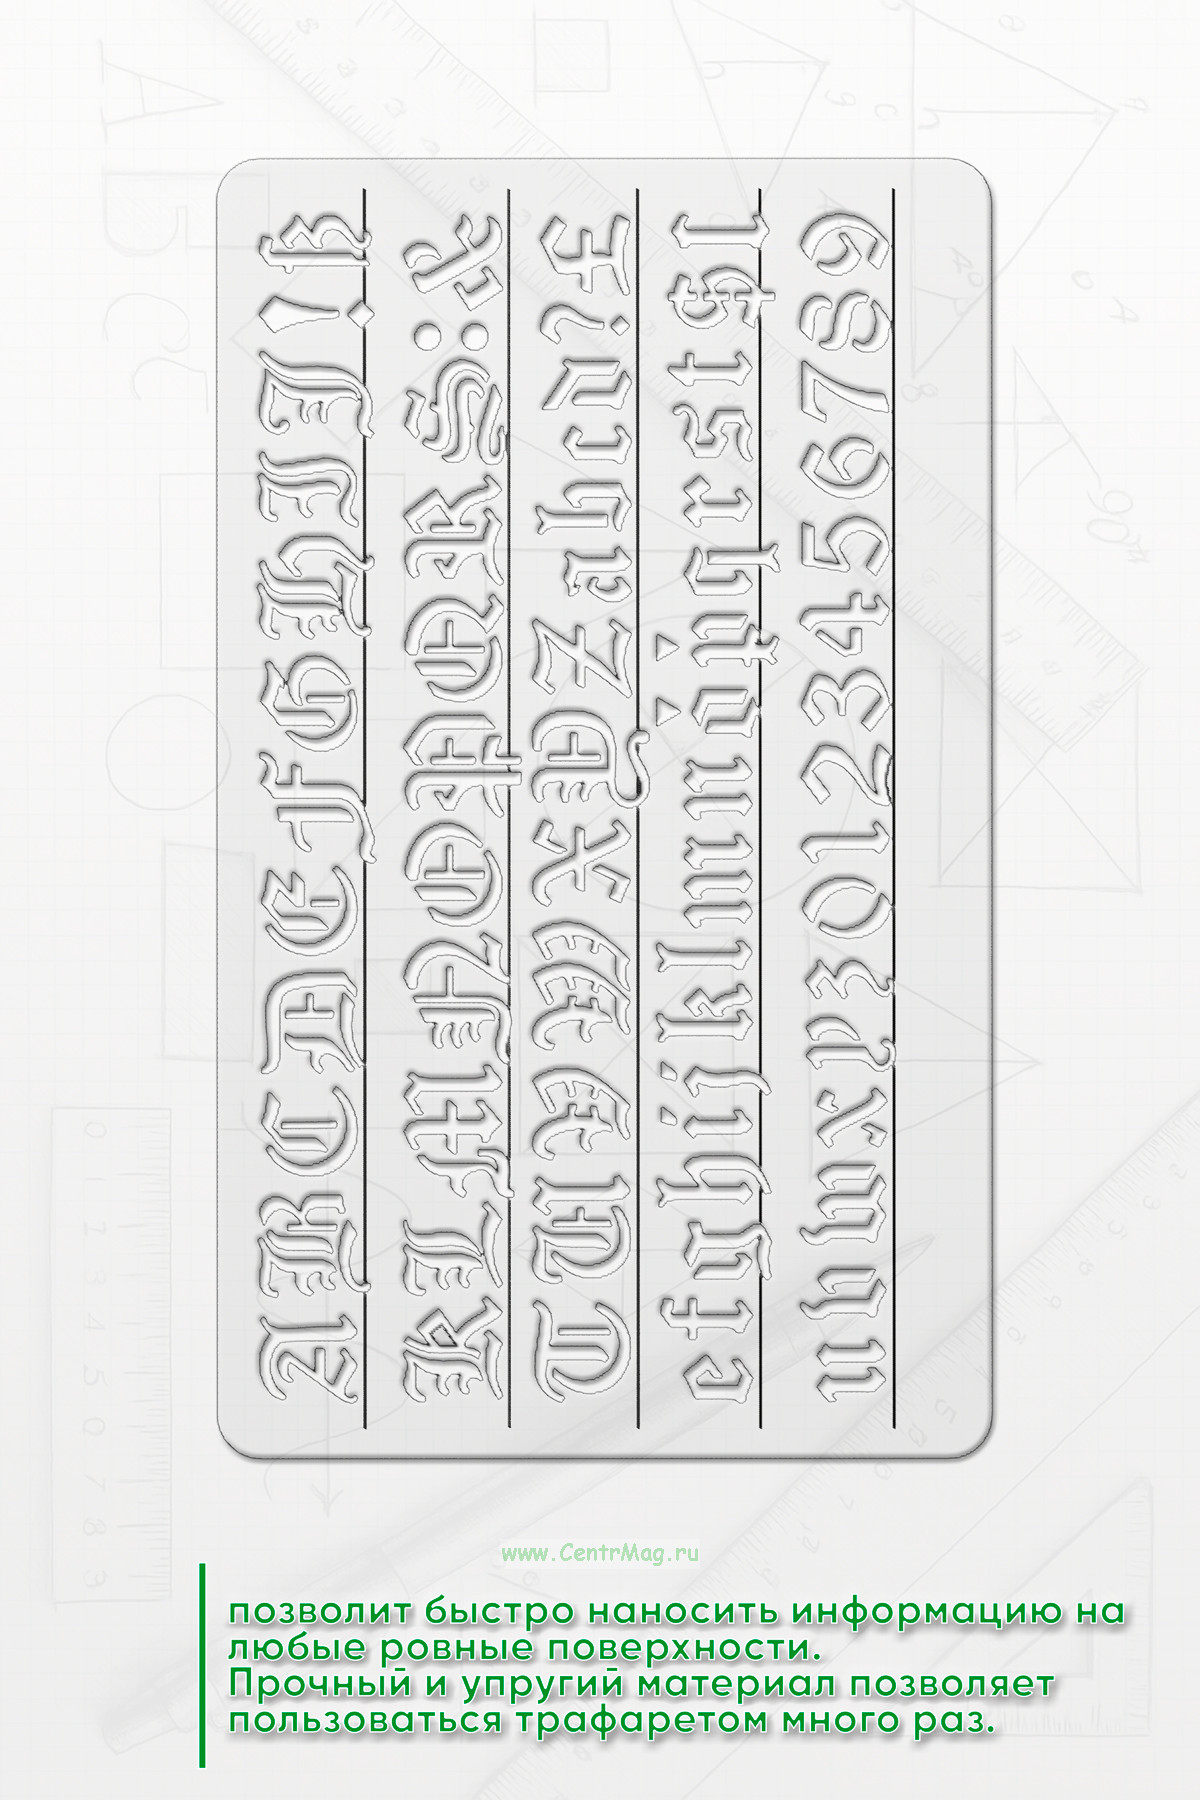 ABCDEFGHIJ!ß
KLMNOPQRS:&
TUVWXYZabcd?£
efghijklmnopqrst$
uvwxyz0123456789
www.CentrMag.ru
позволит быстро наносить информацию на
любые ровные поверхности.
Прочный и упругий материал позволяет
пользоваться трафаретом много раз.